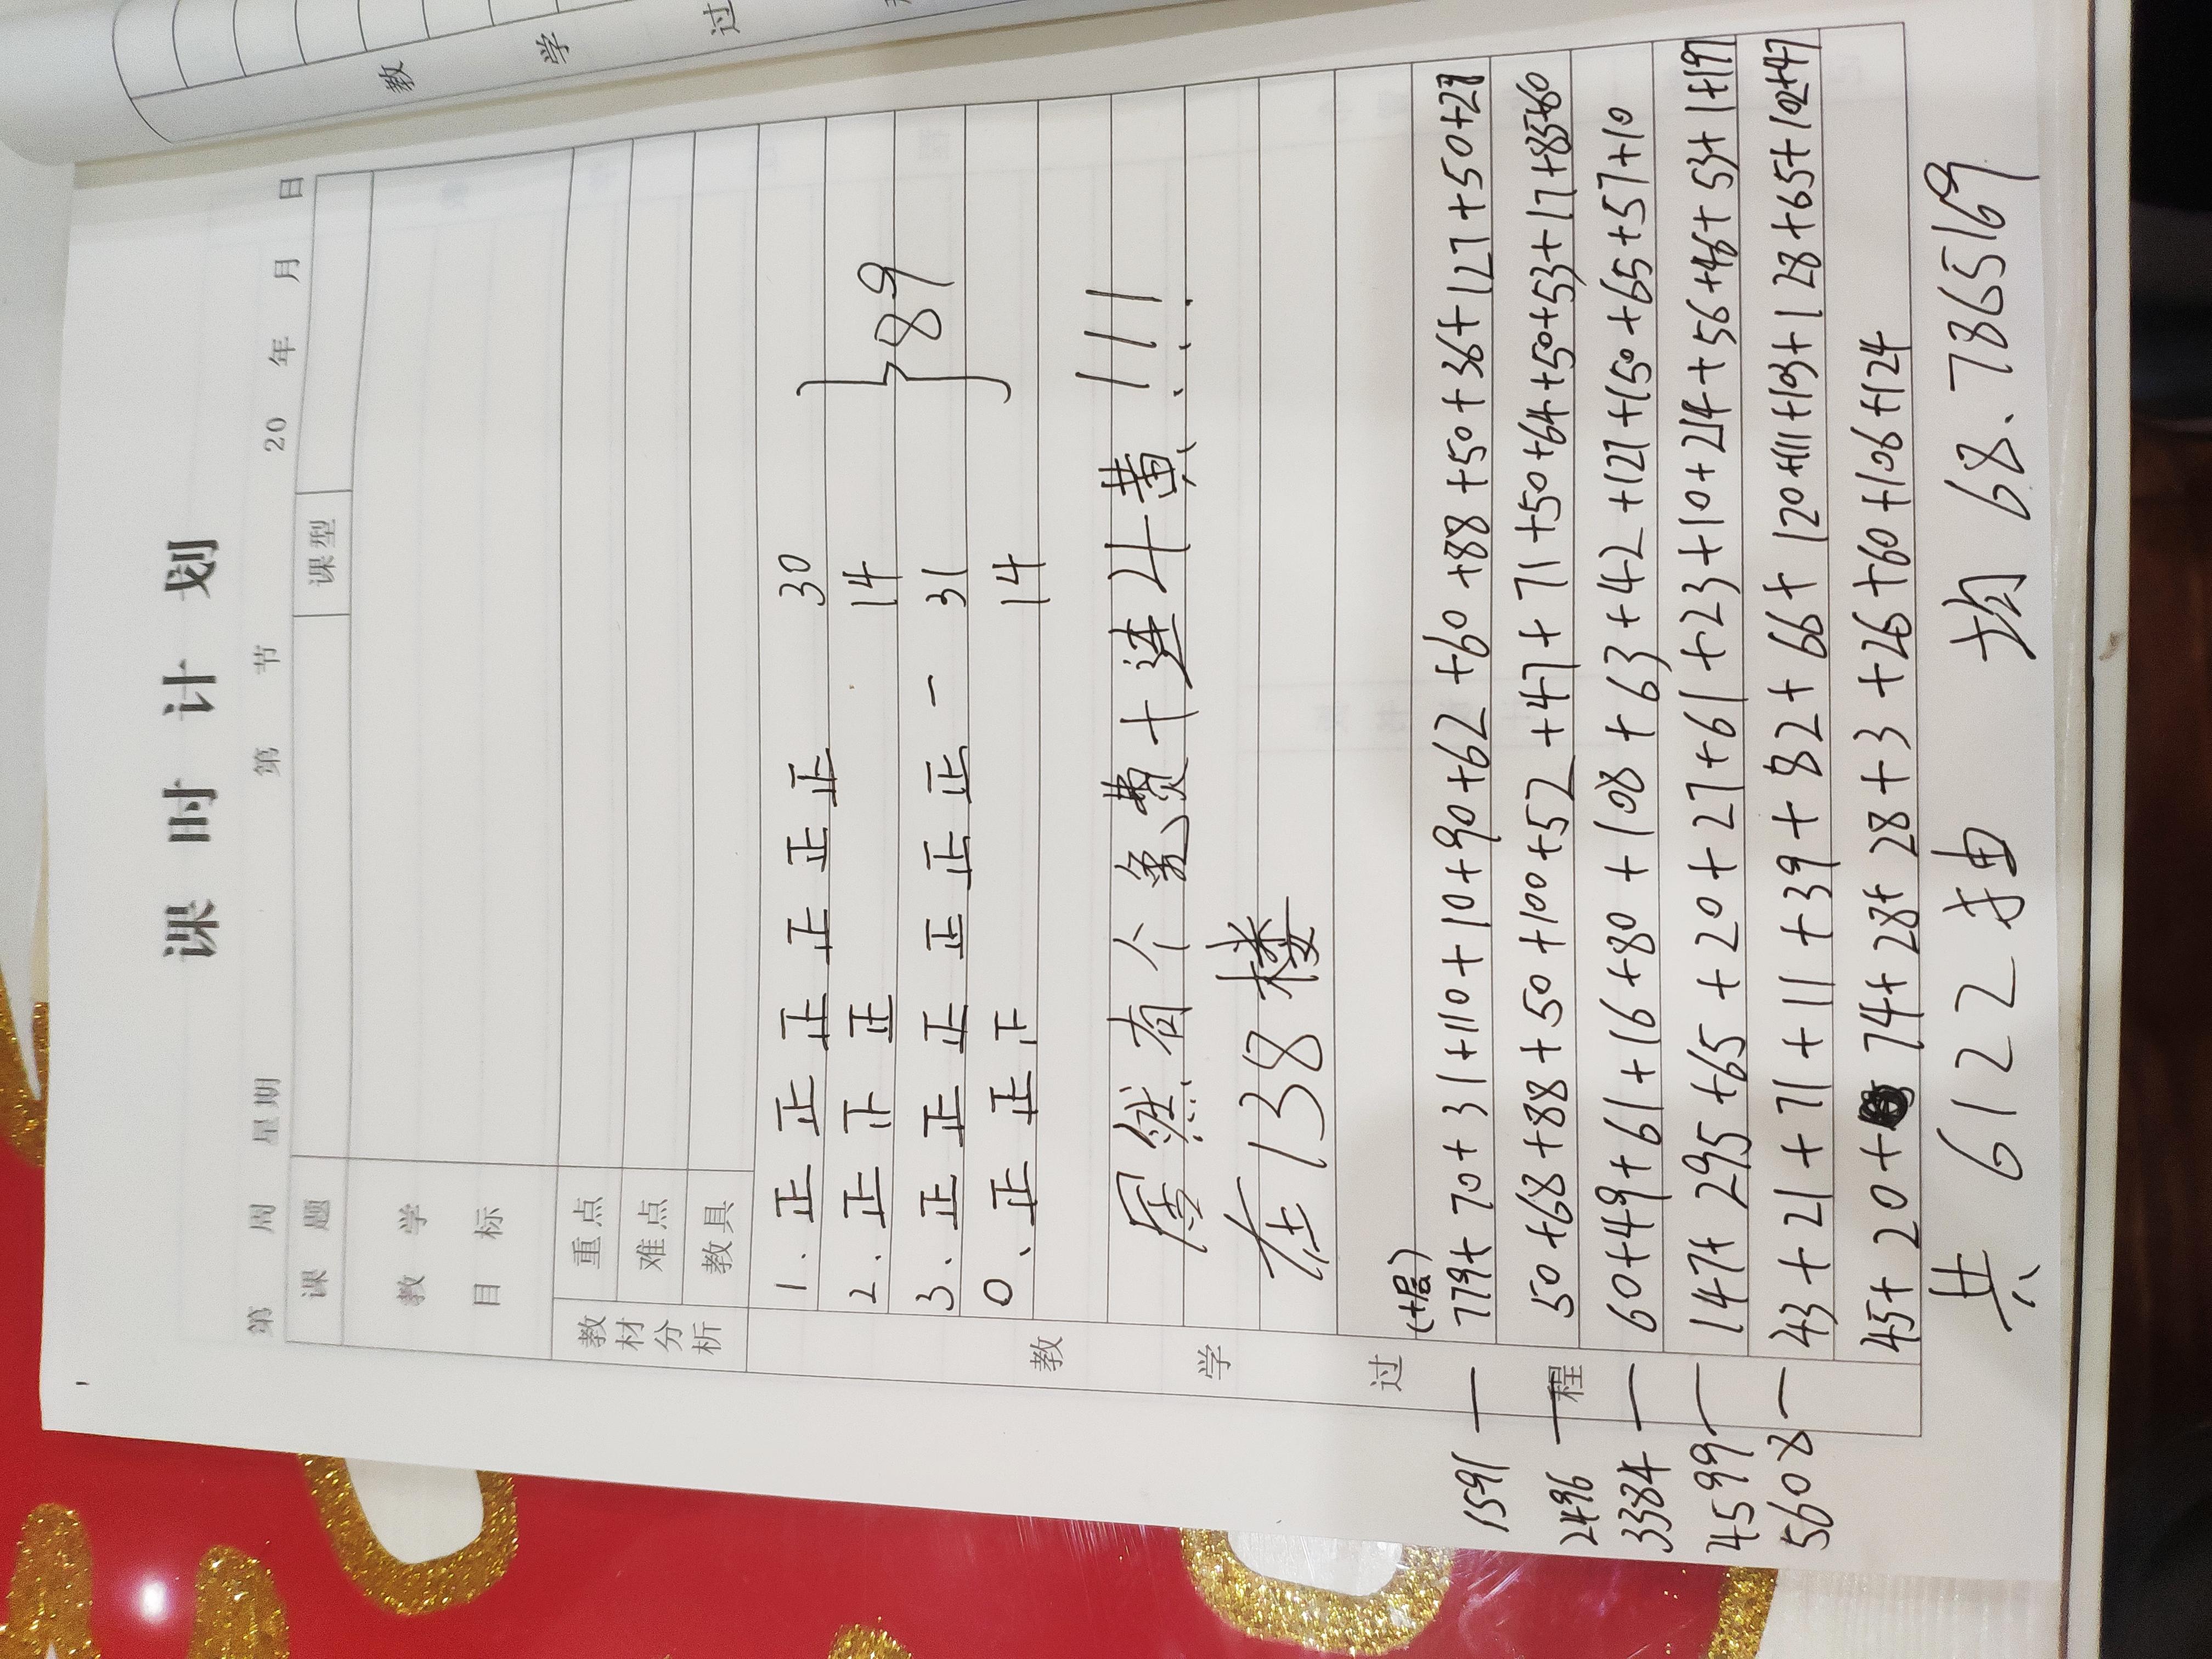 教 学 过
课 时 计 划
第 周 星期 第 节 20 年 月 日
课 题 课型
教 学
目 标
教材分析
重点
难点
教具
教 学 过 程
1. 正 正 正 正 正 正 30
2. 正 正 正 14
3. 正 正 正 正 正 正 一 31
0、正 正 正 14
} 89
居然有个免费十连斗黄!!!
在138楼
(+层)
1591 — 779+70+31+110+10+90+62+60+88+50+36+127+50+28
2496 — 50+68+88+50+100+52+47+71+50+64+50+53+17+85+60
3384 — 60+49+61+16+80+108+63+42+127+150+65+57+10
4599 — 147+295+65+20+27+61+23+10+214+56+46+53+1+197
5608 — 43+21+71+11+39+82+66+120+111+193+128+65+102+47
45+20+74+28+28+3+26+60+106+124
共6122抽 均68.7865169